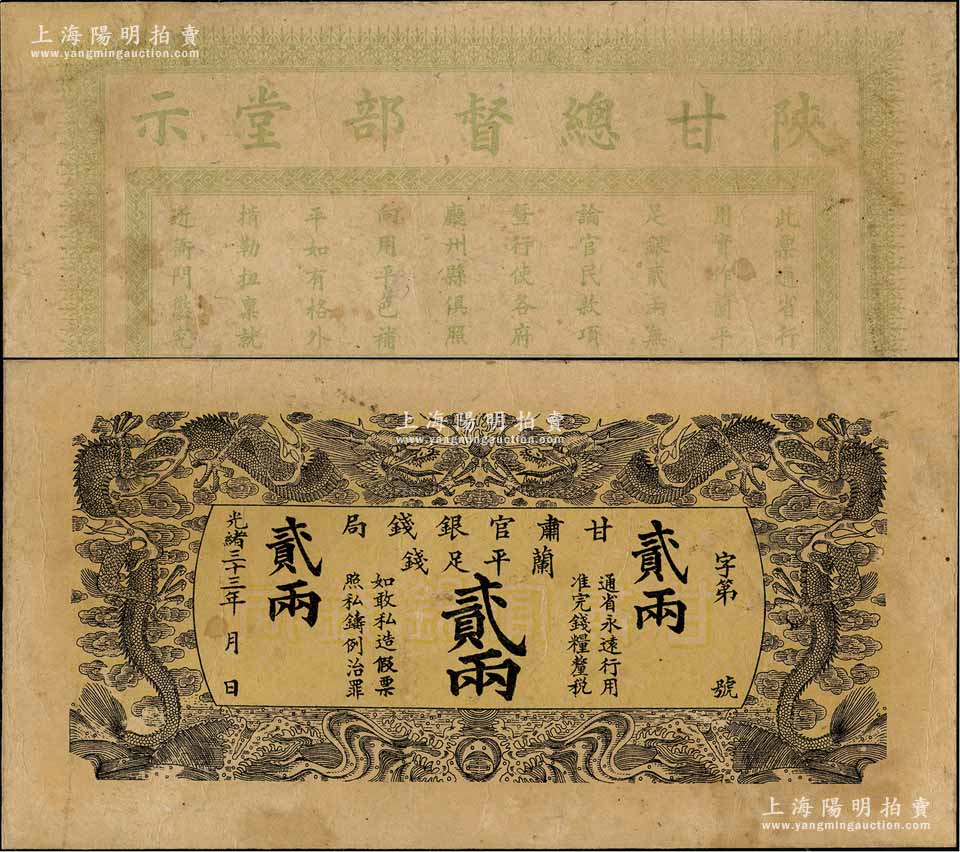 上海陽明拍賣
www.yangmingauction.com
陝甘總督部堂示
此票通省行
用實作蘭平
足銀貳兩無
論官民款項
暨行使各府
廳州縣俱照
向用平色補
平如有格外
揹勒扭稟就
近衙門懲究
上海陽明拍賣
www.yangmingauction.com
甘肅官銀錢局
蘭平足錢
字第 號
貳兩
通省永遠行用
准完錢糧釐税
貳兩
如敢私造假票
照私鑄例治罪
貳兩
光緒三十三年 月 日
上海陽明拍賣
www.yangmingauction.com